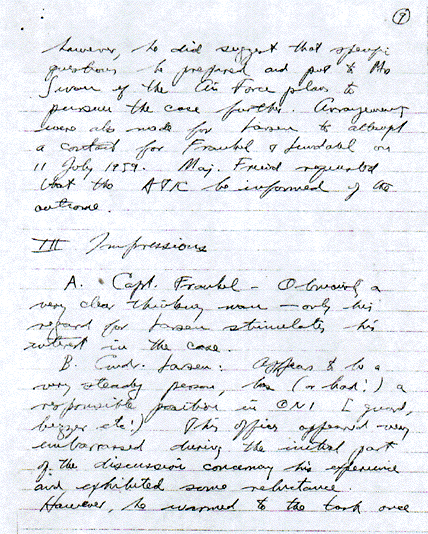 9
however, he did suggest that specific
questions be prepared and put to Mrs
Swan if the Air Force plans to
pursue the case further. Arrangements
were also made for Larsen to attempt
a contact for Frankel & Lundahl on
11 July 1959. Maj. Friend requested
that the ATIC be informed of the
outcome.
III Impressions
A. Capt. Frankel - Obviously a
very clear thinking man - only his
regard for Larsen stimulates his
interest in the case.
B. Cmdr. Larsen: Appears to be a
very steady person, has (or had!) a
responsible position in ONI [guard,
buzzer etc!) This officer appeared very
embarrassed during the initial part
of the discussion concerning his experience
and exhibited some reluctance
However, he warmed to the task once